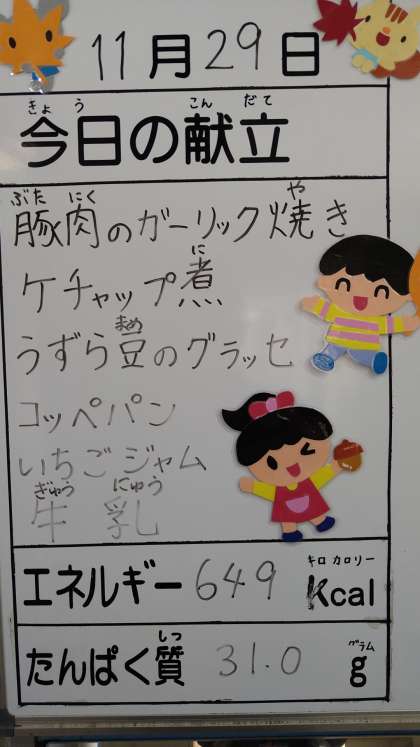 11月29日
きょう こんだて
今日の献立
ぶた にく や
豚肉のガーリック焼き
に
ケチャップ煮
まめ
うずら豆のグラッセ
コッペパン
いちごジャム
ぎゅう にゅう
牛 乳
キロ カロリー
エネルギー 649 Kcal
しつ グラム
たんぱく質 31.0 g